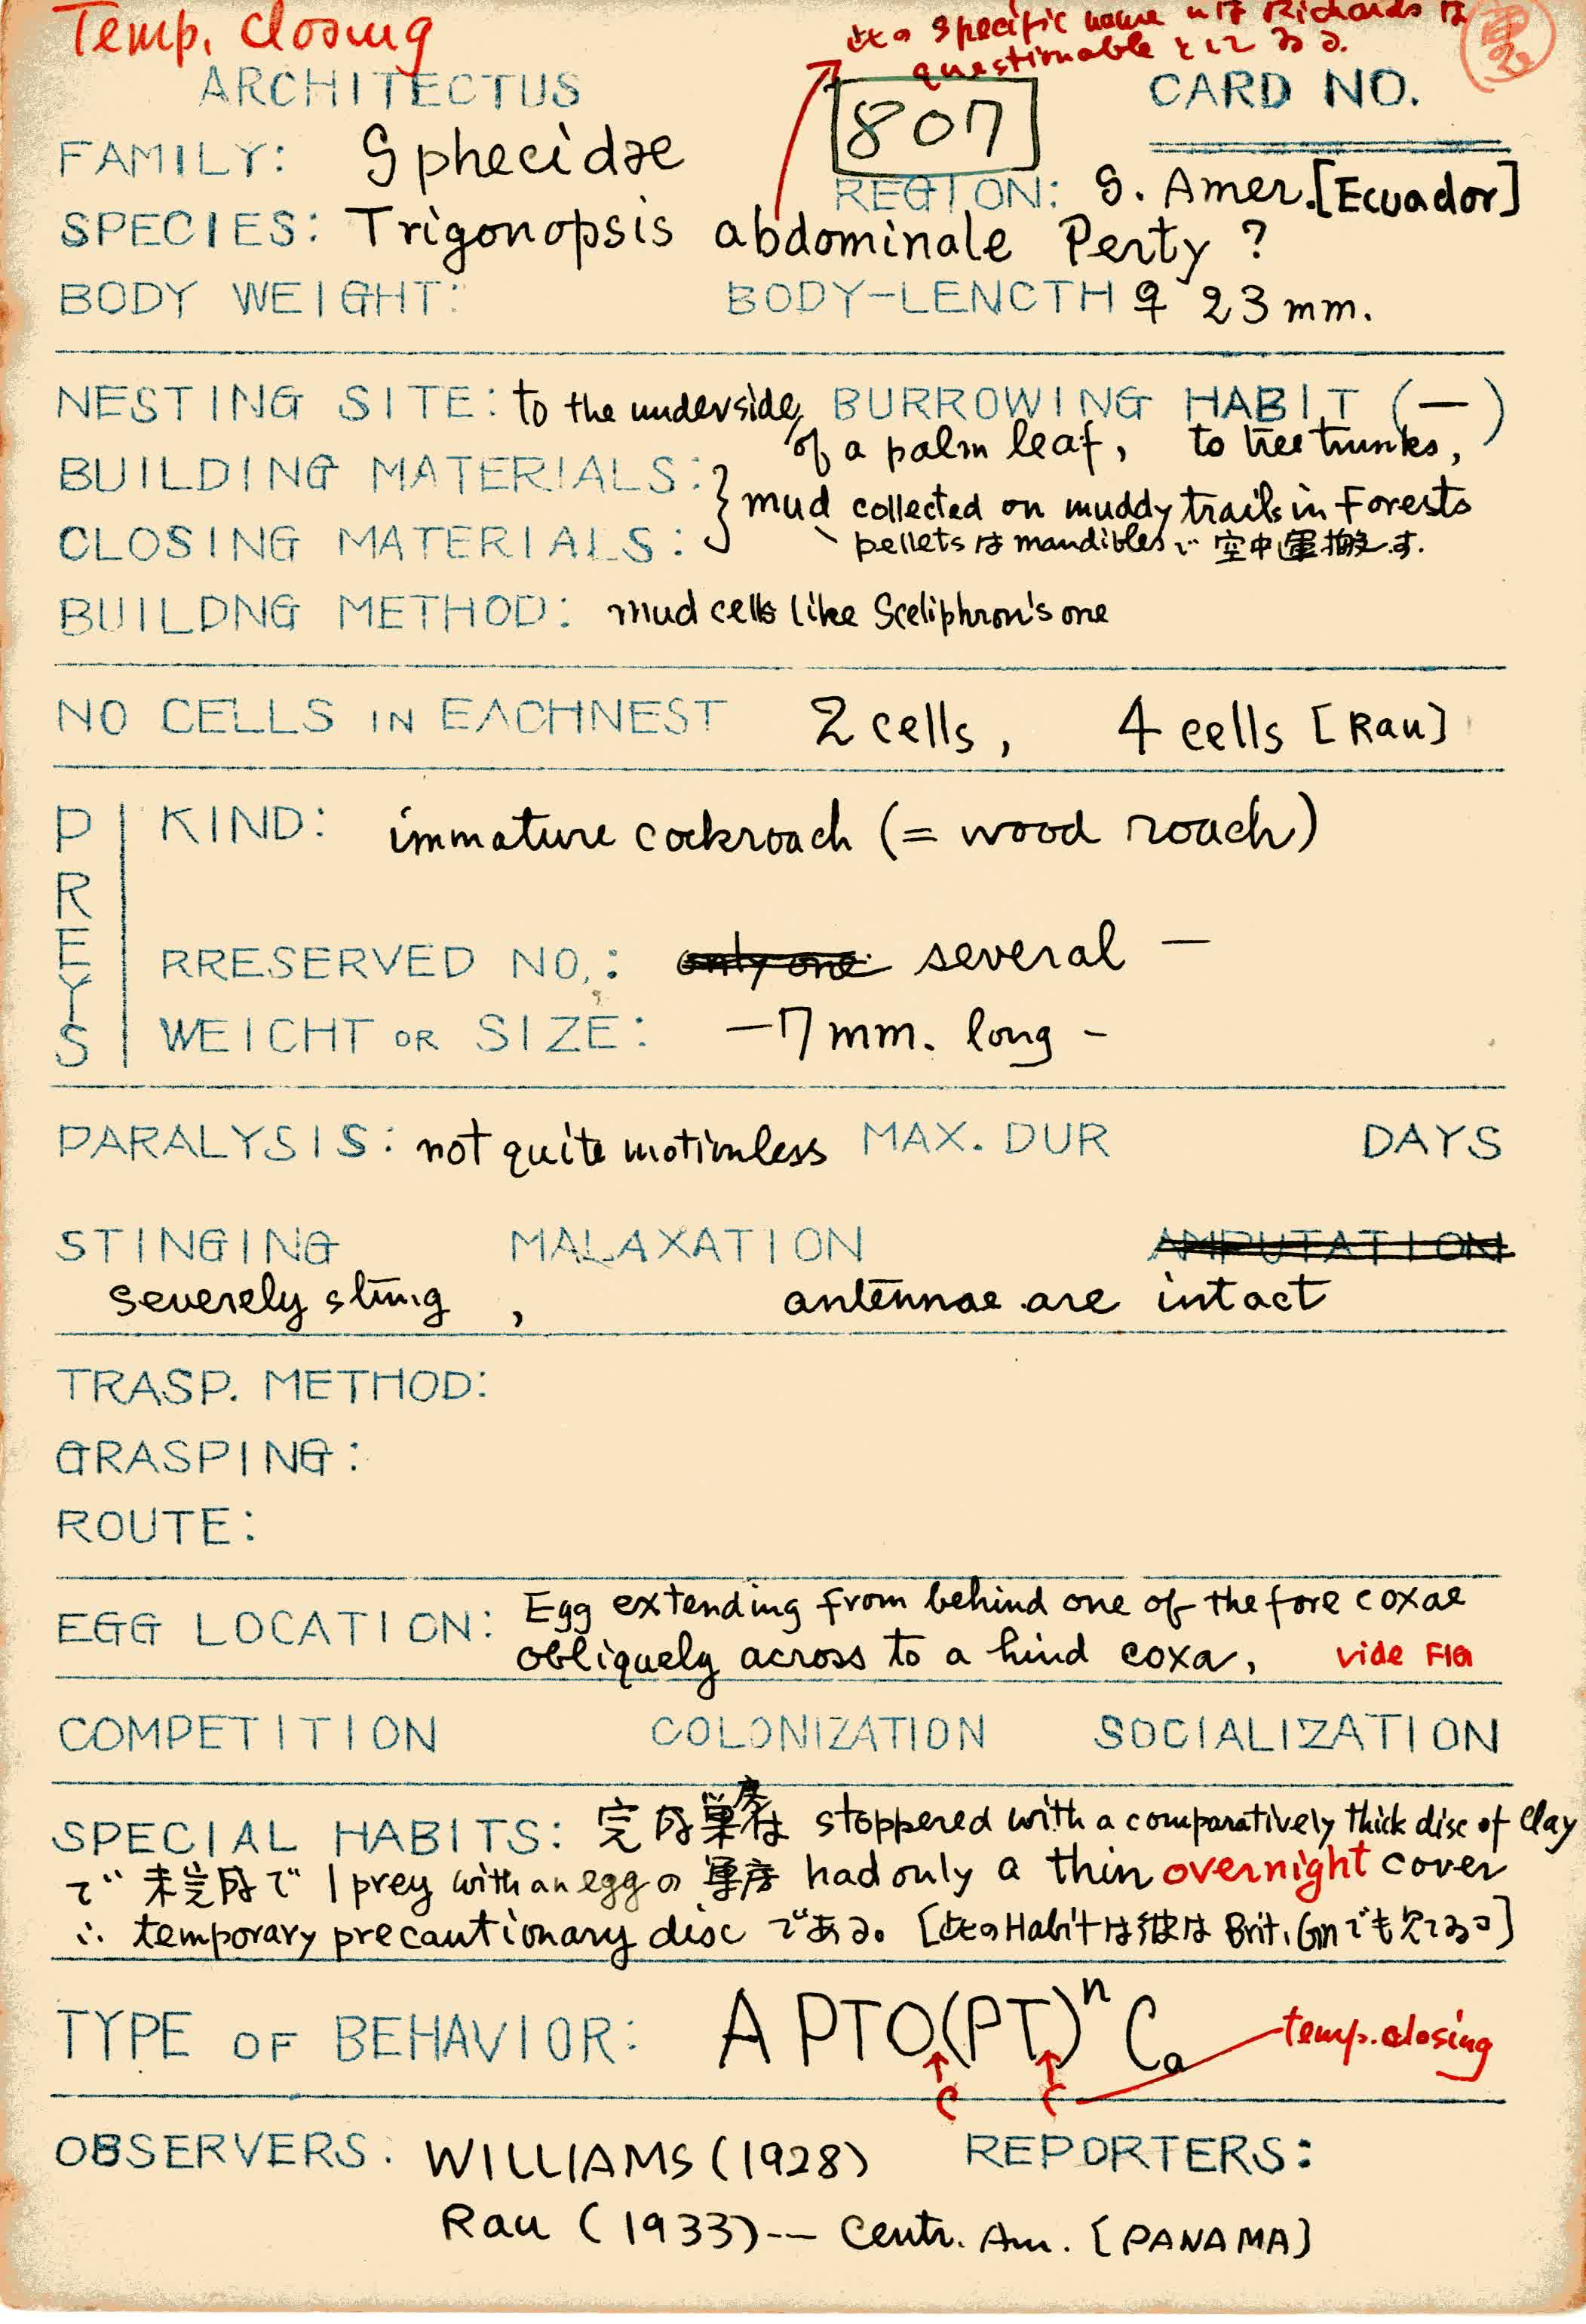 Temp. closing
此の specific name は Richards は
questionable としている。
ARCHITECTUS
807
CARD NO.
FAMILY: Sphecidae
REGION: S. Amer. [Ecuador]
SPECIES: Trigonopsis abdominale Perty ?
BODY WEIGHT: BODY-LENGTH ♀ 23 mm.
NESTING SITE: to the underside BURROWING HABIT (—)
of a palm leaf, to tree trunks,
BUILDING MATERIALS:
mud collected on muddy trails in Forests
CLOSING MATERIALS:
pellets は mandibles で 空中運搬す.
BUILDNG METHOD: mud cells like Sceliphron's one
NO CELLS IN EACHNEST 2 cells, 4 cells [Rau]
PREYS
KIND: immature cockroach (= wood roach)
RRESERVED NO.: only one several —
WEICHT OR SIZE: —7 mm. long -
PARALYSIS: not quite motionless MAX. DUR DAYS
STINGING MALAXATION AMPUTATION
severely sting, antennae are intact
TRASP. METHOD:
GRASPING:
ROUTE:
EGG LOCATION: Egg extending from behind one of the fore coxae
obliquely across to a hind coxa, vide FIG
COMPETITION COLONIZATION SOCIALIZATION
SPECIAL HABITS: 完成巣房は stoppered with a comparatively thick disc of clay
で 未完成で 1 prey with an egg の 巣房 had only a thin overnight cover
∴ temporary precautionary disc である。[此の Habit は彼は Brit. Gn でも
TYPE OF BEHAVIOR: A PTO(PT)ⁿ Ca temp. closing
C C
OBSERVERS: WILLIAMS (1928) REPORTERS:
Rau (1933)-- Centr. Am. [PANAMA]